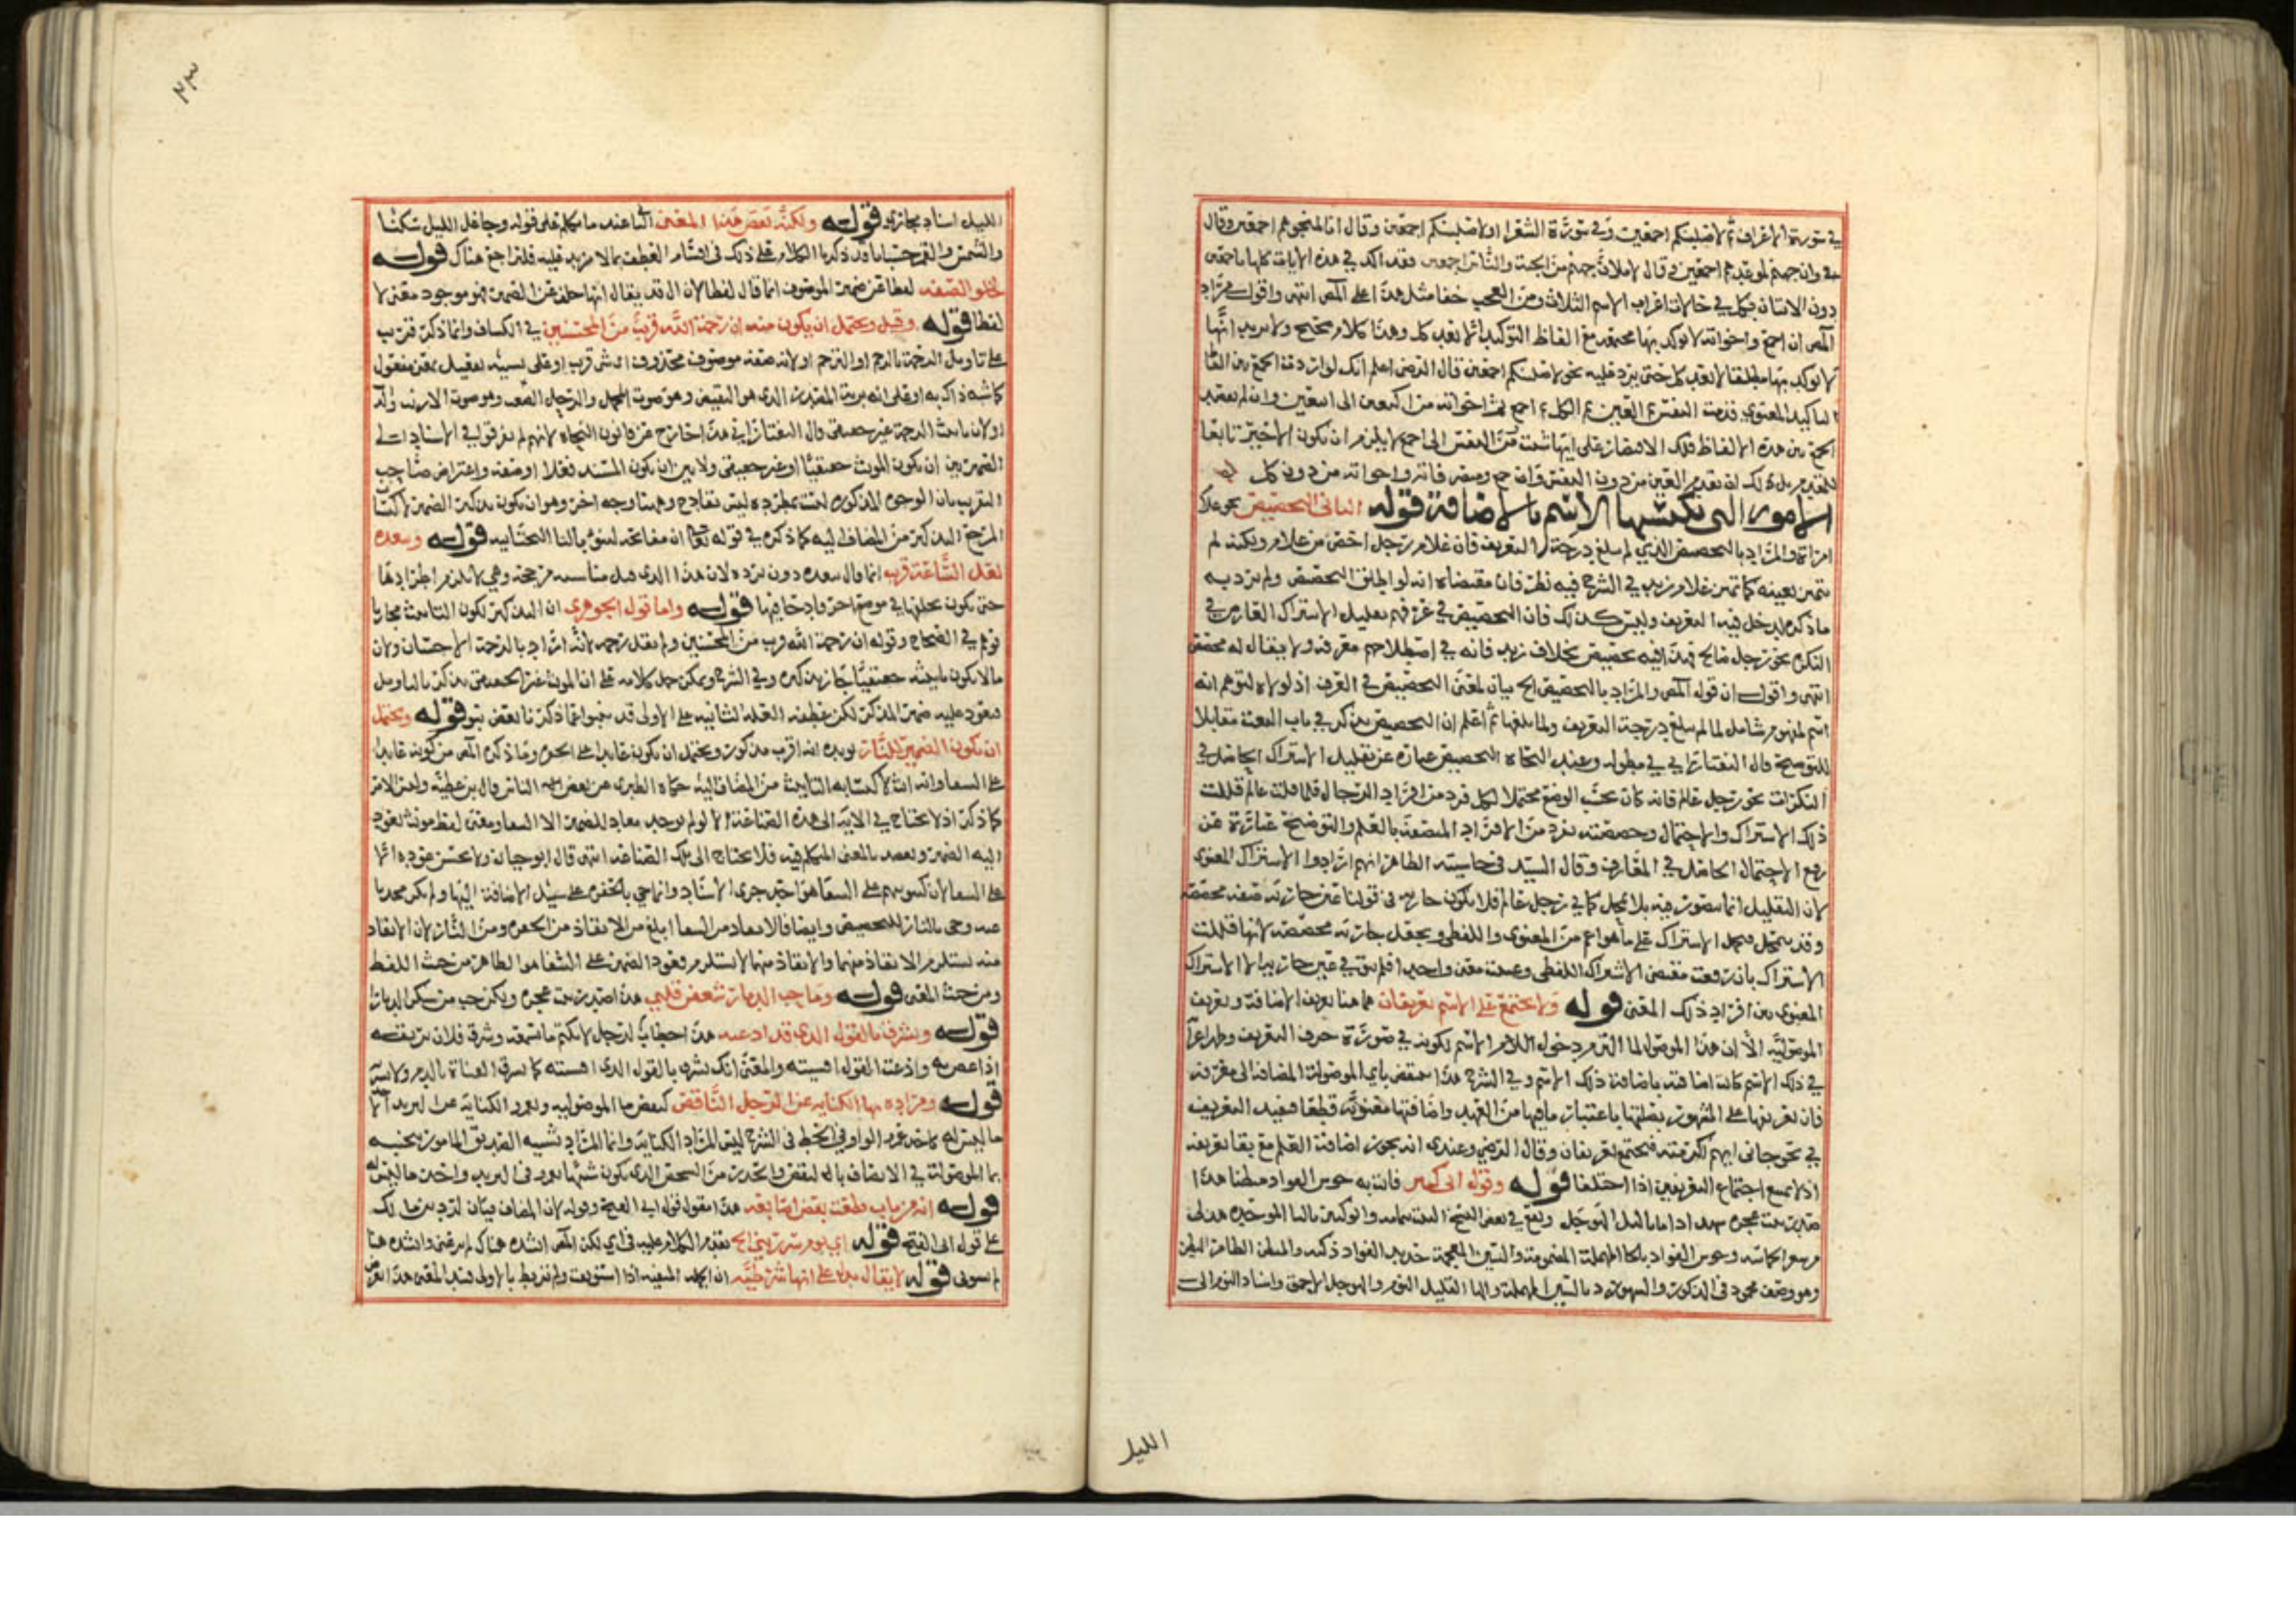 في سورة الاعراف ثم لاصلبنكم اجمعين وفي سورة الشعرا ولاصلبنكم اجمعين وقال انا لمنجوهم اجمعين وقال
وان جهنم لموعدهم اجمعين وقال لاملأن جهنم من الجنة والناس اجمعين فقد اكد في هذه الايات كلها باجمعين
دون الاتيان بكل في حالات اعراب الاسم الثلاث ومن العجب خفا مثل هذا على المص انتهى واقول مراد
المص ان اجمع واخواته لا توكد بها مجتمعة مع الفاظ التوكيد الا بعد كل وهذا كلام صحيح ولا يريد انها
لا توكد بها مطلقا الا بعد كل حتى يرد عليه نحو لاصلبنكم اجمعين قال الرضي اعلم انك لو اردت الجمع بين الفاظ
التاكيد المعنوي قدمت النفس ثم العين ثم الكل ثم اجمع ثم اخواته من اكتعين الى ابصعين وان لم تقصد
الجمع بين هذه الالفاظ فلك الاقتصار على ايها شئت من النفس الى اجمع لا يلزم ان يكون الاخير تابعا
للمقدم بل لك ان تقدم العين من دون النفس واجمع واخواته من دون كل
الامور التي يكتسبها الاسم بالاضافة قوله الثاني التخصيص نحو غلام
امراة والمراد بالتخصيص الذي لم يبلغ درجة التعريف فان غلام رجل اخص من غلام ولكنه لم
يتميز بعينه كما تميز غلام زيد في الشرح فيه نظر فان مقتضاه انه لو اطلق التخصيص ولم يرد به
ما ذكره لدخل فيه التعريف وليس كذلك فان التخصيص في عرفهم تقليل الاشتراك العارض في
النكرة نحو رجل صالح فهذا فيه تخصيص بخلاف زيد فانه في اصطلاحهم معرفة ولا يقال له مخصص
انتهى واقول ان قول المص والمراد بالتخصيص الخ بيان لمعنى التخصيص في العرف اذ لولاه لتوهم انه
اسم لمفهوم شامل لما لم يبلغ درجة التعريف ولما بلغها ثم اعلم ان التخصيص يذكر في باب النعت مقابلا
للتوضيح قال التفتازاني في مطوله وعند النحاة التخصيص عبارة عن تقليل الاشتراك الحاصل في
النكرات نحو رجل عالم فانه كان بحسب الوضع محتملا لكل فرد من افراد الرجال فلما قلت عالم قللت
ذلك الاشتراك والاحتمال وخصصته بفرد من الافراد المتصفة بالعلم والتوضيح عبارة عن
رفع الاحتمال الحاصل في المعارف وقال السيد في حاشيته الظاهر انهم ارادوا الاشتراك المعنوي
لان التقليل انما يتصور فيه بلا تمحل كما في رجل عالم فلا يكون جارية في قولنا عين جارية صفة مخصصة
وقد يتمحل فيحمل الاشتراك على ما هو اعم من المعنوي واللفظي ويجعل جارية مخصصة لانها قللت
الاشتراك بان رفعت مقتضى الاشتراك اللفظي وعينت معنى واحدا فلم يبق في عين جارية الا الاشتراك
المعنوي بين افراد ذلك المعنى قوله ولا يجتمع على الاسم تعريفان هما هنا تعريف الاضافة وتعريف
الموصولية الا ان هذا الموصول لما التزم دخول اللام الاسم لكونه في صورة حرف التعريف
في ذلك الاسم كانت اضافته باضافة ذلك الاسم وفي الشرح هذا منتقض باي الموصولة المضافة الى معرفة
فان تعريفها على المشهور بصلتها باعتبار ما فيها من العهد واضافتها معنوية قطعا فتفيد التعريف
في نحو جاءني ايهم اكرمته فيجتمع تعريفان وقال الرضي وعندي انه يجوز اضافة العلم مع بقا تعريفه
اذ لا يمتنع اجتماع التعريفين اذا اختلفا قوله وقول ابي كبير فاتت به حوش الفواد مبطنا هذا
صدر بيت عجزه سهدا اذا ما نام ليل الهوجل ويقع في بعض النسخ
وحوش الفواد بالحا المهملة المضمومة والشين المعجمة حديد الفواد ذكيه والمبطن الظامر البطن
وهو وصف محمود في الذكور والسهود بالسين المهملة والها القليل النوم والهوجل الاحمق واسناد النوم الى
الليل
٢٣
الليل اسناد مجازي قوله ولكنه نقض هذا المعنى الثا عند ما تكلم على قوله وجاعل الليل سكنا
والشمس والقمر حسبانا قد ذكرنا الكلام على ذلك في اقسام العطف بما لا مزيد عليه فليراجع هناك قوله
لخلو الصفة لفظا عن ضمير الموصوف انما قال لفظا لان ال قد يقال انها خلف عن الضمير فهو موجود معنى لا
لفظا قوله وقيل ويحتمل ان يكون منه ان رحمة الله قريب من المحسنين في الكشاف وانما ذكر قريب
على تاويل الرحمة بالرحم او الترحم او لانه صفة موصوف محذوف اي شي قريب او على تشبيه بفعيل بمعنى مفعول
كما شبه ذاك به او على انه بزنة المصدر الذي هو النقيض وهو صوت المحمل والرحل الضغيب وهو صوت الارنب
او لان تانيث الرحمة غير حقيقي قال التفتازاني هذا خارج عن قانون النحاة لانهم لم يفرقوا في الاسناد الى
الضمير بين ان يكون المونث حقيقيا او غير حقيقي ولا بين ان يكون المسند فعلا او صفة واعتراض صاحب
التقريب بان الوجوه المذكورة ليست بمطردة ليس بقادح وههنا وجه اخر وهو ان يكون تذكير الضمير لاكتساب
المرجع التذكير من المضاف اليه كما ذكره في قوله تعالى ان مفاتحه لينوء باليا التحتانية قوله ويبعده
لعل الساعة قريب انما قال يبعده دون يرده لان هذا الذي قيل مناسبة مرجحة وهي لا يلزم اطرادها
حتى يكون تخلفها في موضع اخر قادحا فيها قوله واما قول الجوهري ان التذكير لكون التانيث مجازيا
فوهم في الصحاح وقوله ان رحمة الله قريب من المحسنين ولم يقل قريبة لانه اراد بالرحمة الاحسان ولان
ما لا يكون تانيثه حقيقيا جاز تذكيره وفي الشرح ويمكن حمل كلامه على ان المونث غير الحقيقي يذكر بالتاويل
فيعود عليه ضمير المذكر لكن عطفه العلة الثانية على الاولى قد ينبو قوله ويحتمل
ان يكون الضمير للنار يويده انه اقرب مذكور ويحتمل ان يكون عايدا على الحفرة وما ذكره المص من كونه عايدا
على الشفا وانه انث لاكتسابه التانيث من المضاف اليه حكاه الطبري عن بعض الناس قال بن عطية وليس الامر
كما ذكر اذ لا يحتاج في الاية الى هذه الصناعة الا لو لم يوجد معاد للضمير الا الشفا ومعنا لفظ مونث يعود
اليه الضمير ويعضده المعنى المتكلم فيه فلا يحتاج الى تلك الصناعة انتهى قال ابو حيان ولا يحسن عوده الا
على الشفا لان كينونتهم على الشفا هو احد جزءي الاسناد وانما جي بالحفرة على سبيل الاضافة اليها ولم يكن محدثا
عنه وجي بالنار للتخصيص وايضا فالانقاذ من الشفا ابلغ من الانقاذ من الحفرة ومن النار لان الانقاذ
منه يستلزم الانقاذ منهما والانقاذ منهما لا يستلزم فعود الضمير على الشفا هو الظاهر من حيث اللفظ
ومن حيث المعنى قوله وما حب الديار شغفن قلبي هذا صدر بيت عجزه ولكن حب من سكن الديارا
قوله وتشرق بالقول الذي قد اذعته هذا خطاب لرجل لا يكتم ما سمعه وشرق فلان بريقه
اذا غص به واذعت القول افشيته والمعنى انك تشرق بالقول الذي افشيته كما شرق القناة بالدم
قوله ومراده بها الكناية عن الرجل الناقص كنقص ما الموصولية وبعمرو الكناية عن المريد اخذ
ما ليس له كاخذ عمرو الواو في الخط في الشرح ليس المراد الكناية وانما المراد تشبيه الصديق المامور بتجنبه
بما الموصولة في الاتصاف بالنقص والتحذير من الشخص الذي يكون شبيها بعمرو في المزيد واخذ ما ليس له
قوله انه من باب قطعت بعض اصابعه هذا مقول قول ابي الفتح وقوله لان المضاف
على قول ابي الفتح قوله اي يوم سررتني الخ تقدم الكلام عليه في اي لكن المص انشده هناك لم ترعني وانشده هنا
لم تسوني قوله لا يقال على انها شرطية